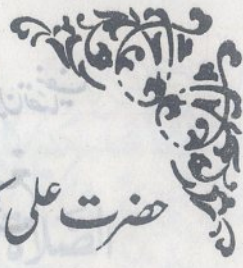 حضرت علی